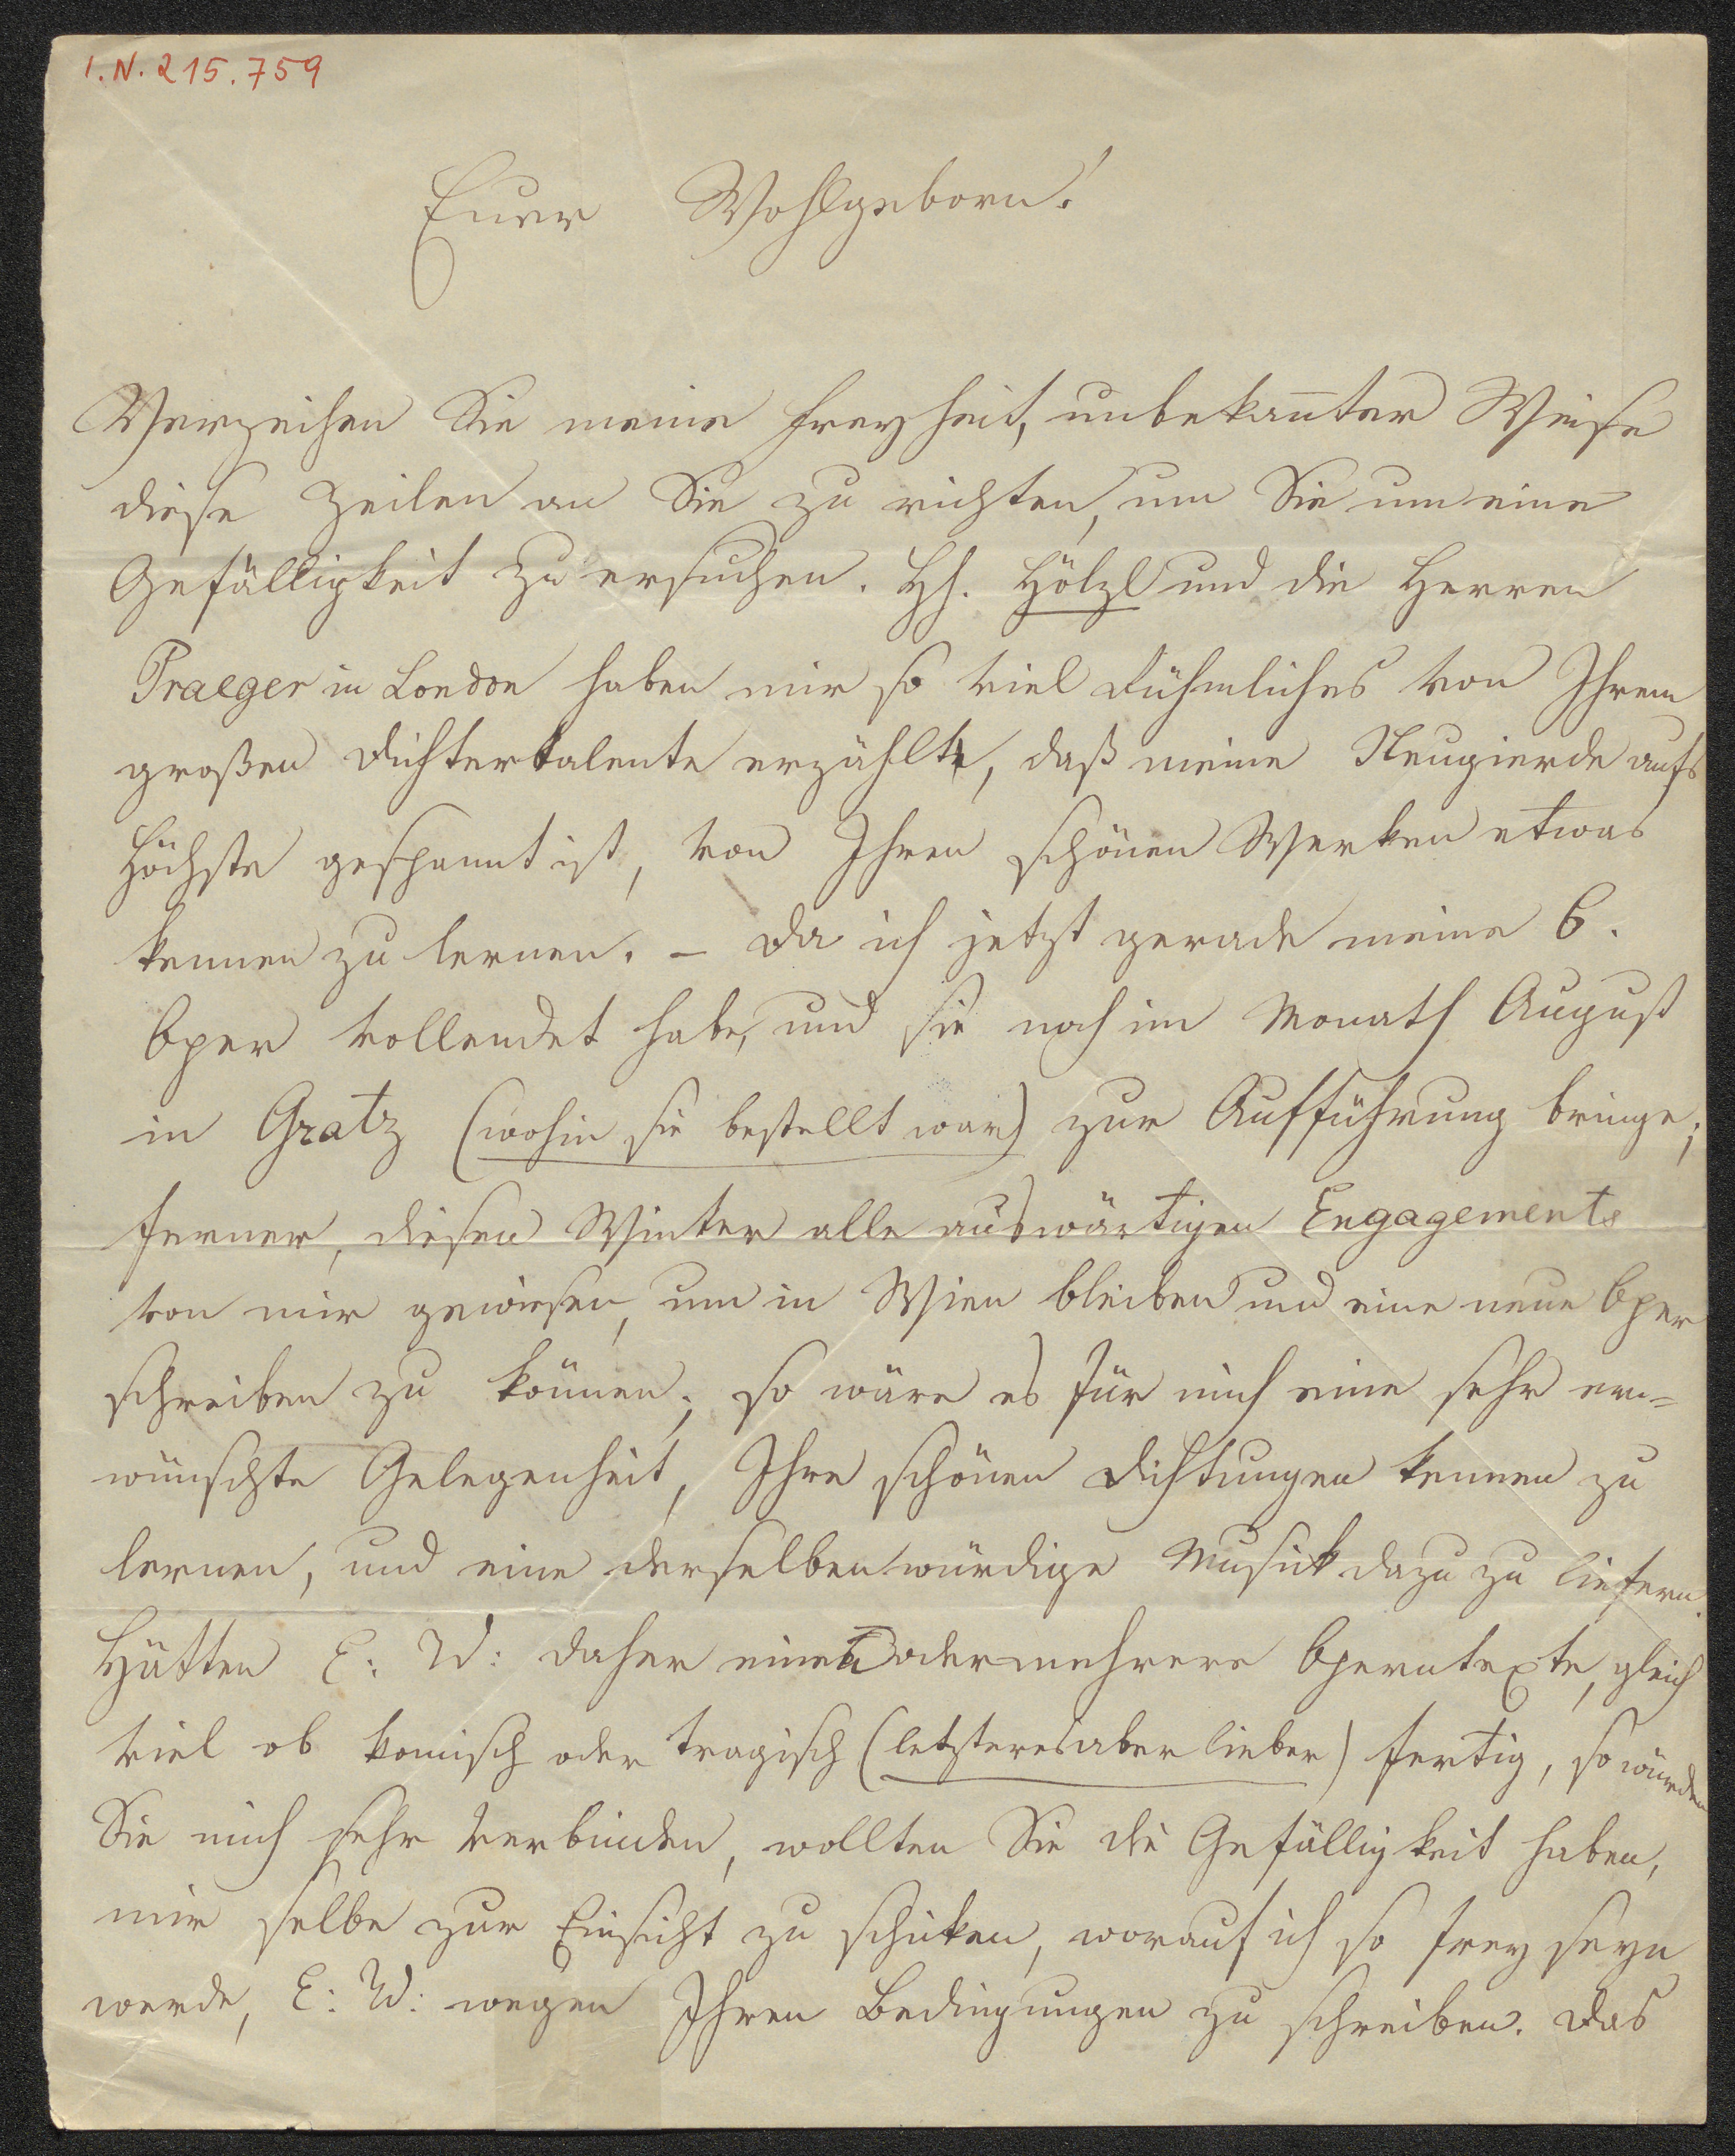 I.N. 215.759
Euer Wohlgeborn!
Verzeihen Sie meine Freyheit, unbekannter Weise
diese Zeilen an Sie zu richten, um Sie um eine
Gefälligkeit zu ersuchen. HH. Hölzl und die Herren
Praeger in London haben mir so viel Rühmliches von Ihrem
großen Dichtertalente erzählt, daß meine Neugierde aufs
Höchste gespannt ist, von Ihren schönen Werken etwas
kennen zu lernen. – Da ich jetzt gerade meine 6.
Oper vollendet habe, und sie noch im Monath August
in Gratz (wohin sie bestellt war) zur Aufführung bringe;
ferner, diesen Winter alle auswärtigen Engagements
von mir gewiesen, um in Wien bleiben und eine neue Oper
schreiben zu können; so wäre es für mich eine sehr er=
wünschte Gelegenheit, Ihre schönen Dichtungen kennen zu
lernen, und eine derselben würdige Musick dazu zu liefern.
Hätten E: W: daher einen oder mehrere Operntexte, gleich
viel ob komisch oder tragisch (letzteres aber lieber) fertig, so würden
Sie mich sehr verbinden, wollten Sie die Gefälligkeit haben,
mir selbe zur Einsicht zu schicken, worauf ich so frey seyn
werde, E: W: wegen Ihren Bedingungen zu schreiben. Das